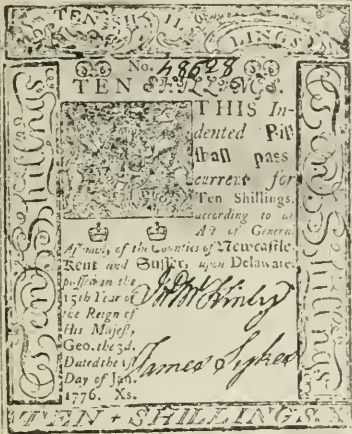 TEN SHIL
LINGS
No. 48628
TEN SHILLINGS.
THIS In-
dented Bill
shall pass
current for
Ten Shillings,
according to an
Act of General
Assembly of the Counties of Newcastle,
Kent and Sussex, upon Delaware,
passed in the
15th Year of
the Reign of
His Majesty
Geo. the 3d.
Dated the 1st
Day of Jan.
1776. Xs.
Jno McKinly
James Sykes
Ten Shillings
Ten Shillings
TEN SHILLINGS. X